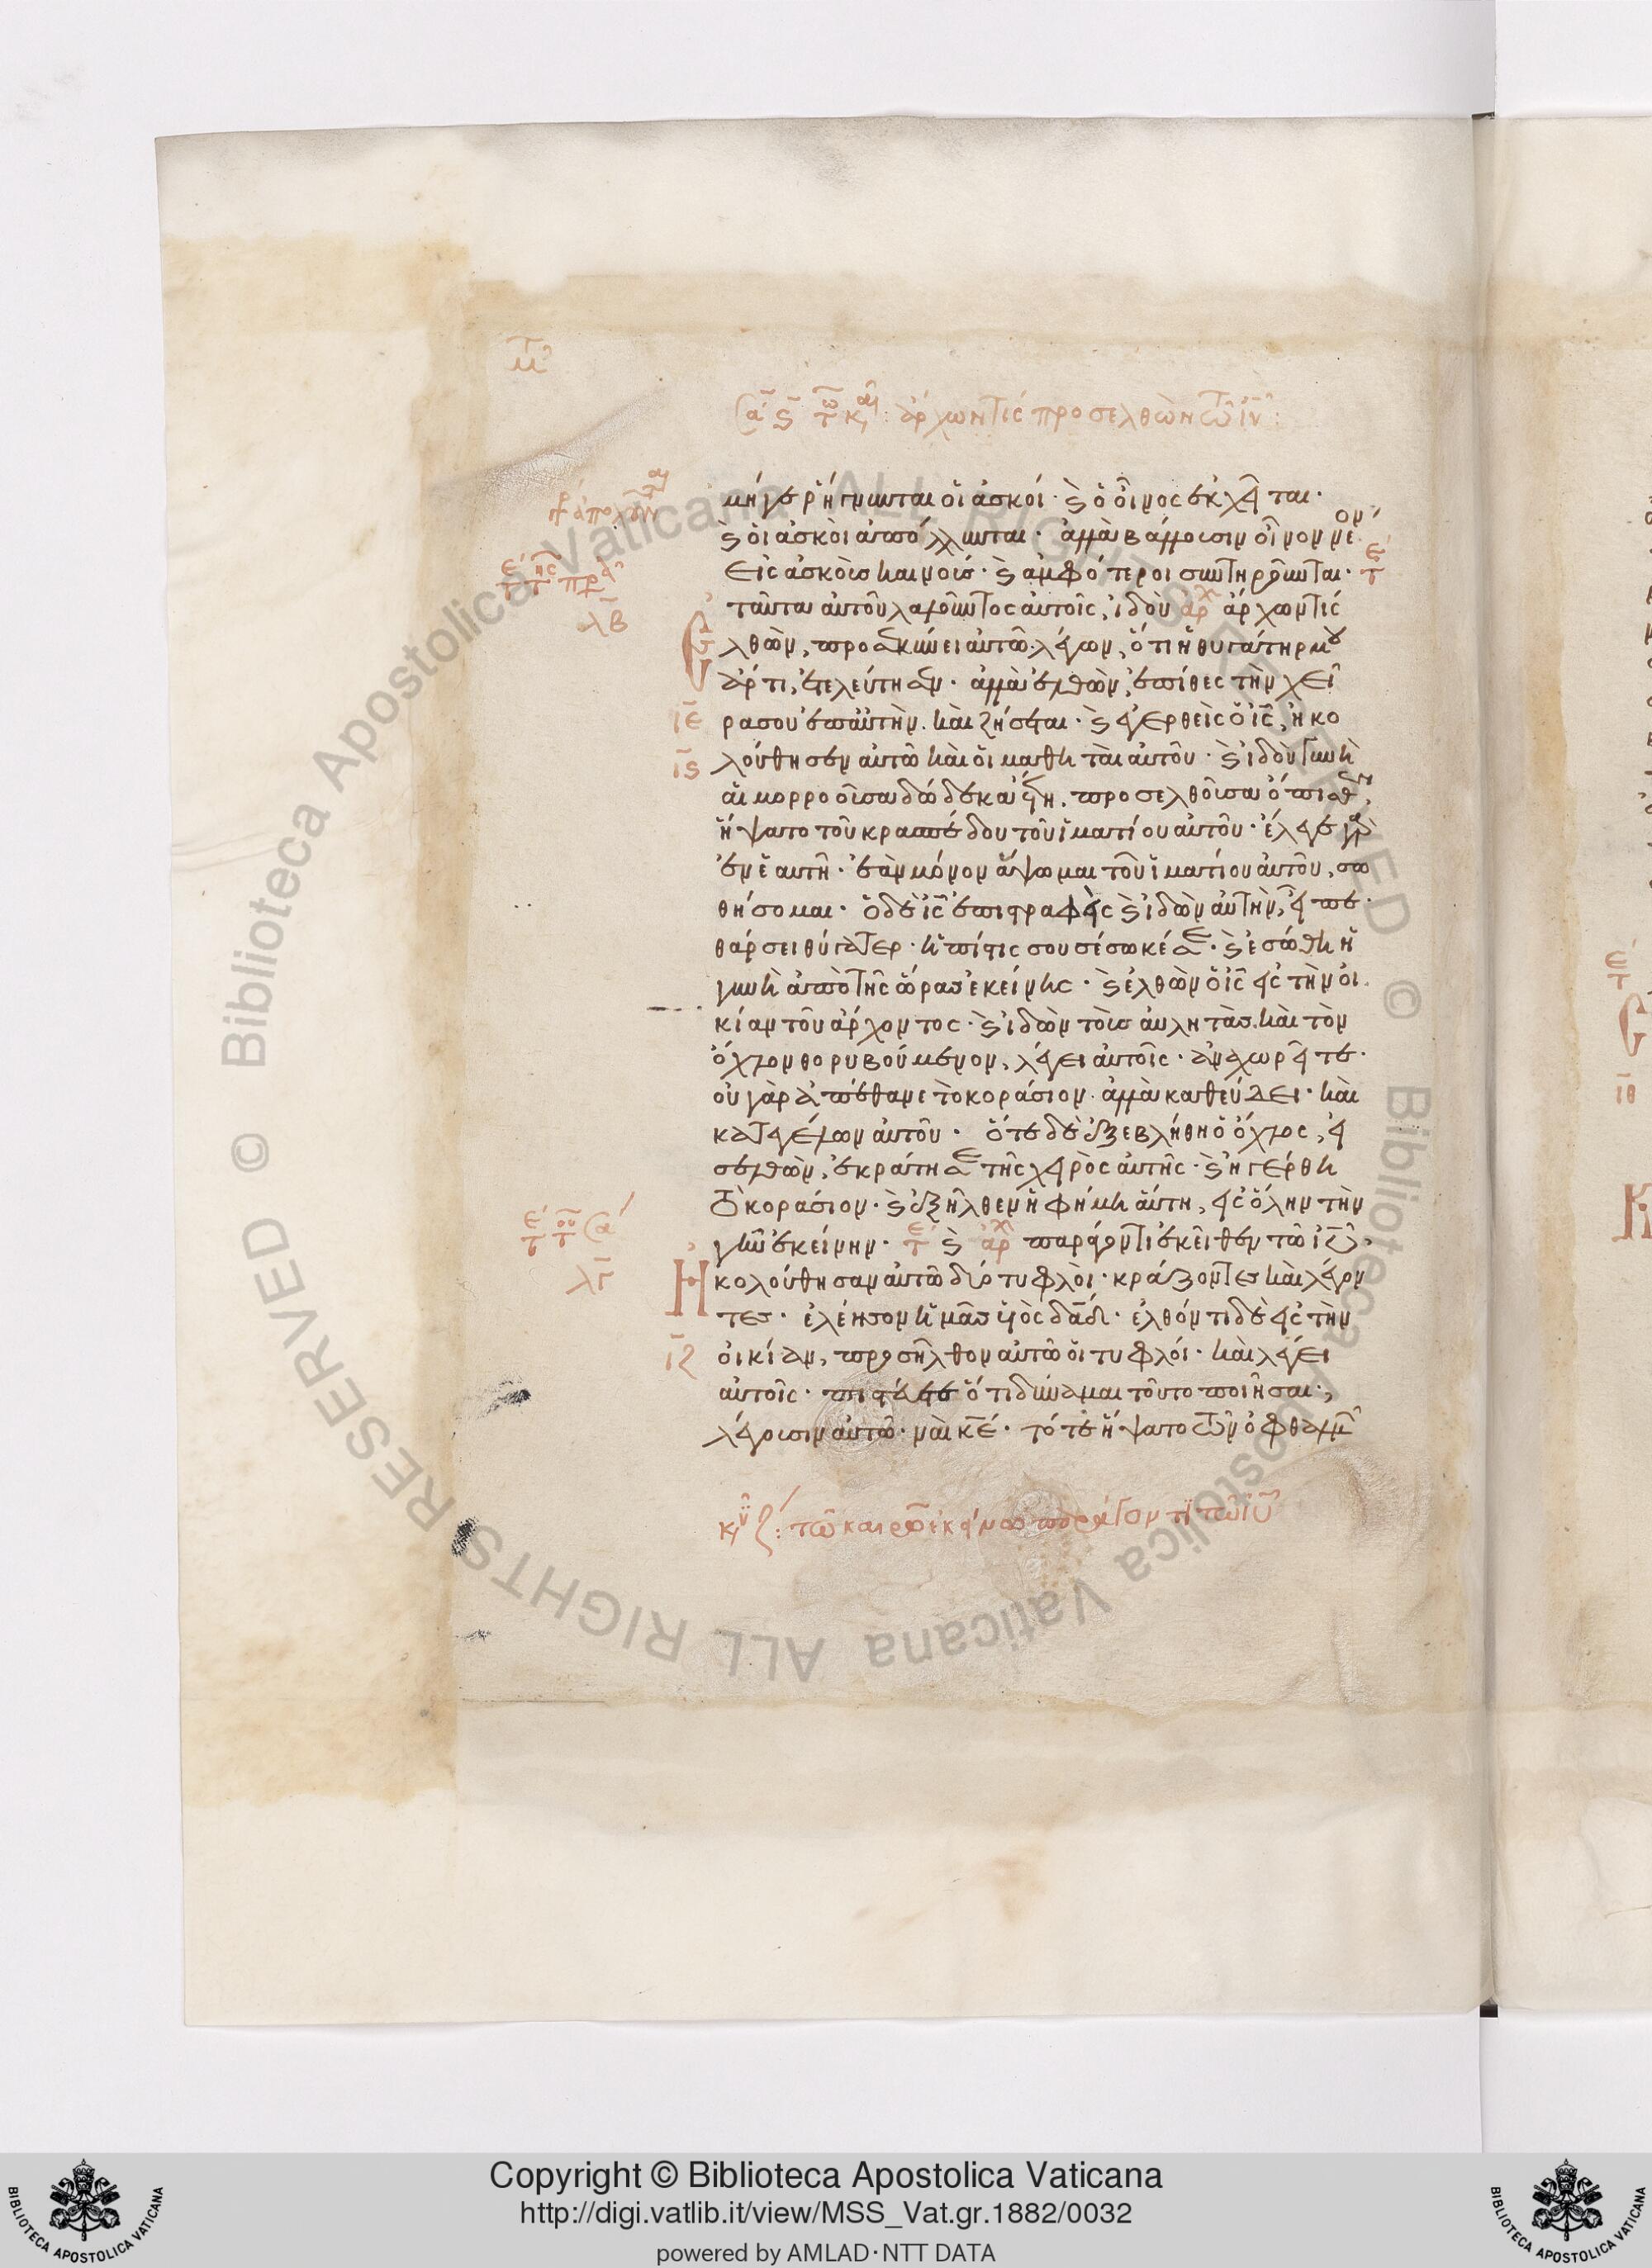 ἄρχων τις προσελθὼν τῶ ἰυ:
μήγε ῥήγνυνται οἱ ἀσκοί· καὶ ὁ οἶνος ἐκχεῖται·
καὶ οἱ ἀσκοὶ ἀπόλλυνται· ἀλλὰ βάλλουσιν οἶνον νέον
εἰς ἀσκοὺς καινούς· καὶ ἀμφότεροι συντηροῦνται·
ταῦτα αὐτοῦ λαλοῦντος αὐτοῖς, ἰδοὺ ἄρχων τις
ἐλθὼν, προσεκύνει αὐτῶ λέγων, ὅτι ἡ θυγάτηρ μου
ἄρτι ἐτελεύτησεν· ἀλλὰ ἐλθὼν, ἐπίθες τὴν χεῖ
ρα σου ἐπ αὐτὴν. καὶ ζήσεται· καὶ ἐγερθεὶς ὁ ις, ἠκο
λούθησεν αὐτῶ καὶ οἱ μαθηταὶ αὐτοῦ· καὶ ἰδοὺ γυνὴ
αἱμορροοῦσα δώδεκα ἔτη, προσελθοῦσα ὄπισθεν,
ἥψατο τοῦ κρασπέδου τοῦ ἱματίου αὐτοῦ· ἔλεγε γὰρ
ἐν ἑαυτῆ· ἐὰν μόνον ἅψωμαι τοῦ ἱματίου αὐτοῦ, σω
θήσομαι· ὁ δὲ ις ἐπιστραφεὶς καὶ ἰδὼν αὐτὴν, εἶπε·
θάρσει θύγατερ· ἡ πίστις σου σέσωκέ σε· καὶ ἐσώθη ἡ
γυνὴ ἀπὸ τῆς ὥρας ἐκείνης· καὶ ἐλθὼν ὁ ις εἰς τὴν οἰ
κίαν τοῦ ἄρχοντος· καὶ ἰδὼν τοὺς αὐλητὰς καὶ τὸν
ὄχλον θορυβούμενον, λέγει αὐτοῖς· ἀναχωρεῖτε·
οὐ γὰρ ἀπέθανε τὸ κοράσιον· ἀλλὰ καθεύδει· καὶ
κατεγέλων αὐτοῦ· ὅτε δὲ ἐξεβλήθη ὁ ὄχλος, εἰ
σελθὼν, ἐκράτησε τῆς χειρὸς αὐτῆς· καὶ ἠγέρθη
τὸ κοράσιον· καὶ ἐξῆλθεν ἡ φήμη αὕτη, εἰς ὅλην τὴν
γῆν ἐκείνην· καὶ παράγοντι ἐκεῖθεν τῶ ιυ,
ἠκολούθησαν αὐτῶ δύο τυφλοὶ· κράζοντες καὶ λέγον
τες· ἐλέησον ἡμᾶς υἱὸς δαδ· ἐλθόντι δὲ εἰς τὴν
οἰκίαν, προσῆλθον αὐτῶ οἱ τυφλοί· καὶ λέγει
αὐτοῖς· πιστεύετε ὅτι δύναμαι τοῦτο ποιῆσαι;
λέγουσιν αὐτῶ· ναὶ κε· τότε ἥψατο τῶν ὀφθαλμῶν
τῶ καιρῶ ἐκείνω παράγοντι τῶ ιυ
λβ
ιε
ις
λγ
ιζ
ιθ
Copyright © Biblioteca Apostolica Vaticana
http://digi.vatlib.it/view/MSS_Vat.gr.1882/0032
powered by AMLAD·NTT DATA
BIBLIOTECA APOSTOLICA VATICANA
BIBLIOTECA APOSTOLICA VATICANA
© Biblioteca Apostolica Vaticana ALL RIGHTS RESERVED © Biblioteca Apostolica Vaticana ALL RIGHTS RESERVED